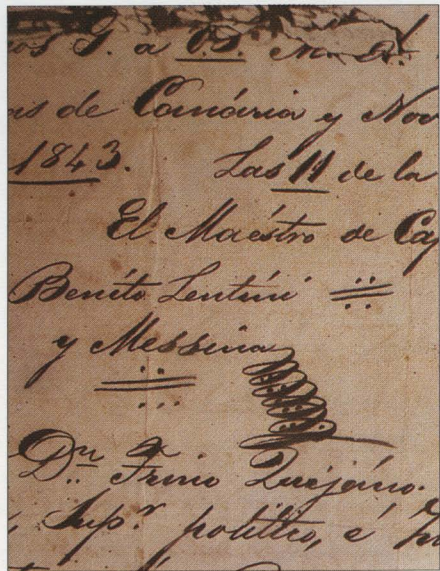 os G. a
as de Canária y Nov
1843. Las 11 de la
El Maéstro de Cap
Benéto Lentini
y Messina
Dn Frnio Quejáno.
Supr político, é